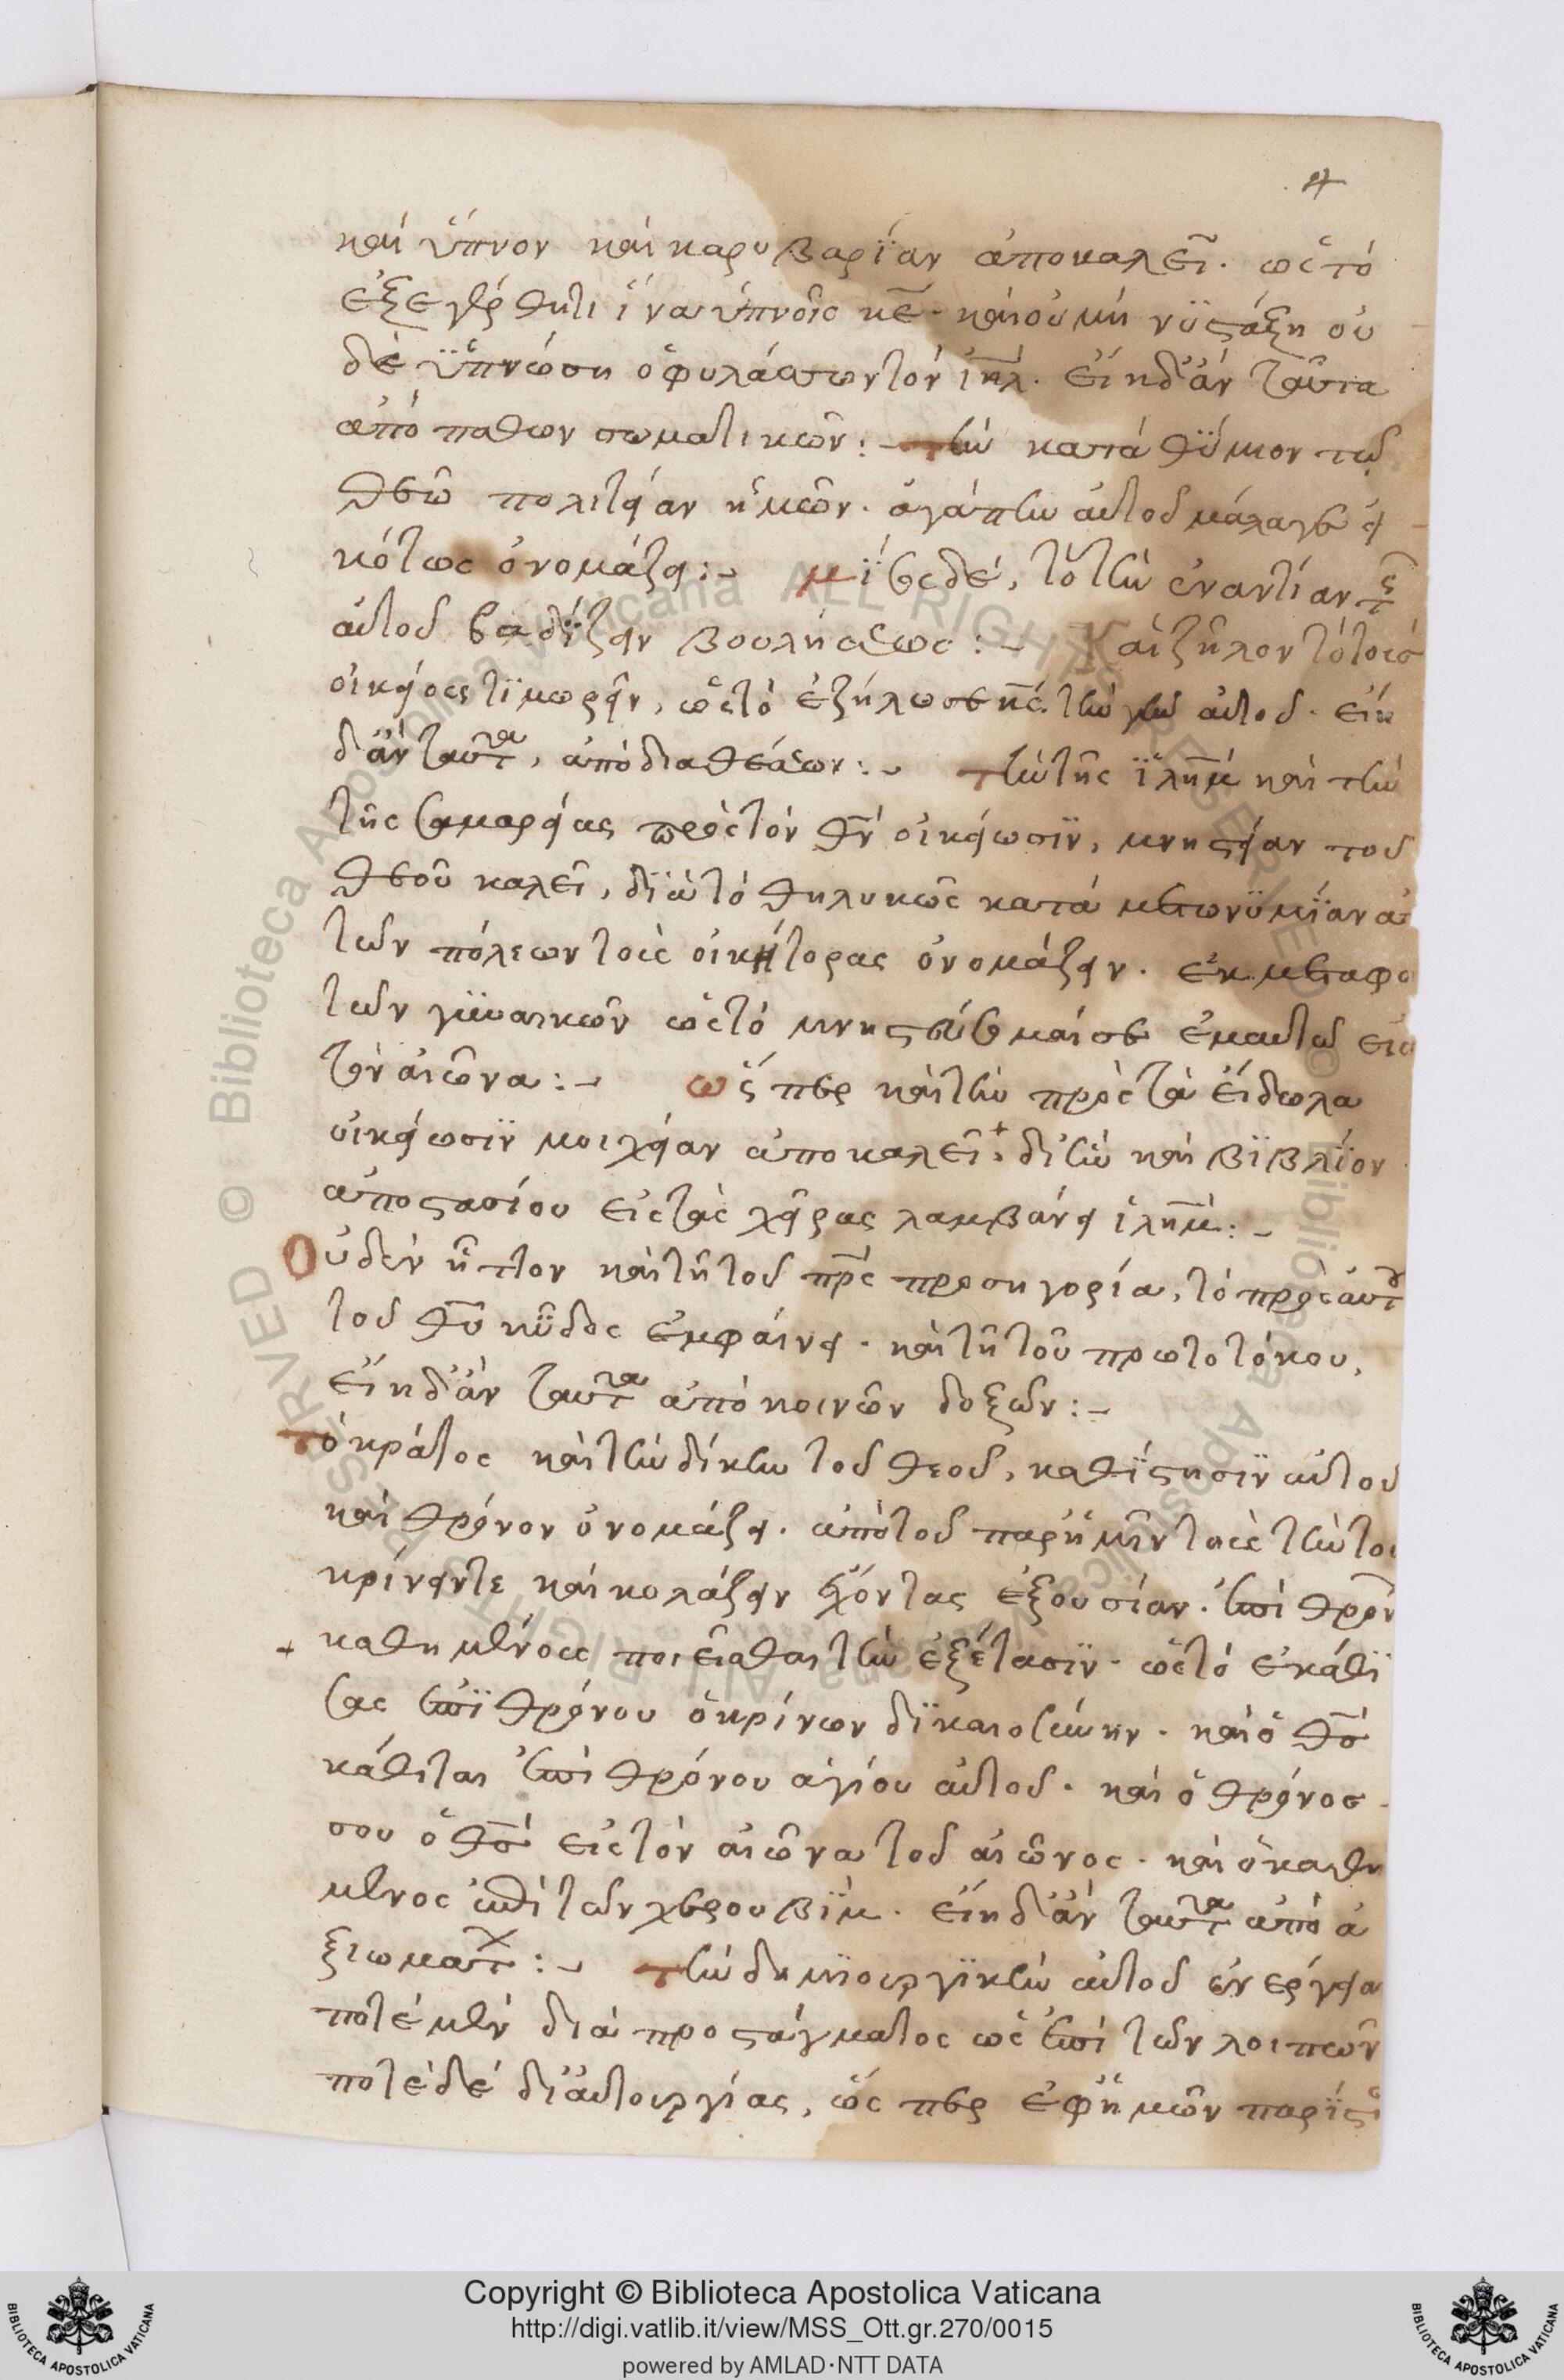 καὶ ὕπνον καὶ καρυβαρίαν ἀποκαλεῖ. ὡς τὸ
ἐξεγέρθητι ἵνα ὑπνοῖς κε. καὶ οὐ μὴ νυστάξη οὐ
δὲ ὑπνώση ὁ φυλάσσων τὸν ιηλ. εἴη δ' ἂν ταῦτα
ἀπὸ παθων σωματικῶν :- τὴν καταθύμιον τῶ
θεῶ πολιτείαν ἡμῶν. ἀγάπην αὐτοῦ μάλα γε εἰ
κότως ὀνομάζει :- μῖσος δέ, τὸ τὴν ἐναντίαν τῆς
αὐτοῦ βαδίζειν βουλήσεως :- Καὶ ζῆλον τὸ τοὺς
οἰκείους τιμωρεῖν, ὡς τὸ ἐξήλωσε κς τὴν γῆν αὐτοῦ. εἴη
δ' ἂν ταῦτα, ἀπὸ διαθέσεων :- τὴν τῆς ιλημ καὶ τὴν
τῆς σαμαρείας πρὸς τὸν θν οἰκείωσιν, μνηστείαν τοῦ
θεοῦ καλεῖ, διὰ τὸ θηλυκῶς κατὰ μετωνυμίαν ἀ
τῶν πόλεων τοὺς οἰκήτορας ὀνομάζειν. ἐκ μεταφο
τῶν γυναικῶν ὡς τὸ μνηστεύσομαί σε ἐμαυτῶ εἰς
τὸν αἰῶνα :- ὥσπερ καὶ τὴν πρὸς τὰ εἴδωλα
οἰκείωσιν μοιχείαν ἀποκαλεῖ. δι' ἣν καὶ βιβλίον
ἀποστασίου εἰς τὰς χεῖρας λαμβάνει ιλημ :-
Οὐδὲν ἧττον καὶ τῆ τοῦ πρς προσηγορία, τὸ πρὸς αὐτοὺς
τοῦ θυ κῦδος ἐμφαίνει. καὶ τῆ τοῦ πρωτοτόκου,
εἴη δ' ἂν ταῦτα ἀπὸ κοινῶν δοξῶν :-
τὸ κράτος καὶ τὴν δίκην τοῦ θεοῦ, καθίστησιν αὐτοῦ
καὶ θρόνον ὀνομάζει. ἀπὸ τοῦ παρ' ἡμῖν τοὺς τὴν το
κρίνειν τε καὶ κολάζειν ἔχοντας ἐξουσίαν. ἐπὶ θρόν
καθημένους ποιεῖσθαι τὴν ἐξέτασιν. ὡς τὸ ἐκάθι
σας ἐπὶ θρόνου ὁ κρίνων δικαιοσύνην. καὶ ὁ θς
κάθηται ἐπὶ θρόνου ἁγίου αὐτοῦ. καὶ ὁ θρόνος
σου ὁ θς εἰς τὸν αἰῶνα τοῦ αἰῶνος. καὶ ὁ καθη
μενος ἐπὶ τῶν χερουβίμ. εἴη δ' ἂν ταῦτα ἀπὸ ἀ
ξιωμάτων :- τὴν δημιουργικὴν αὐτοῦ ἐνέργεια
ποτὲ μὲν διὰ προστάγματος ὡς ἐπὶ τῶν λοιπῶν
ποτὲ δὲ δι' αὐτουργίας, ὥσπερ ἐφ' ἡμῶν παρίστ
Copyright © Biblioteca Apostolica Vaticana
http://digi.vatlib.it/view/MSS_Ott.gr.270/0015
powered by AMLAD·NTT DATA